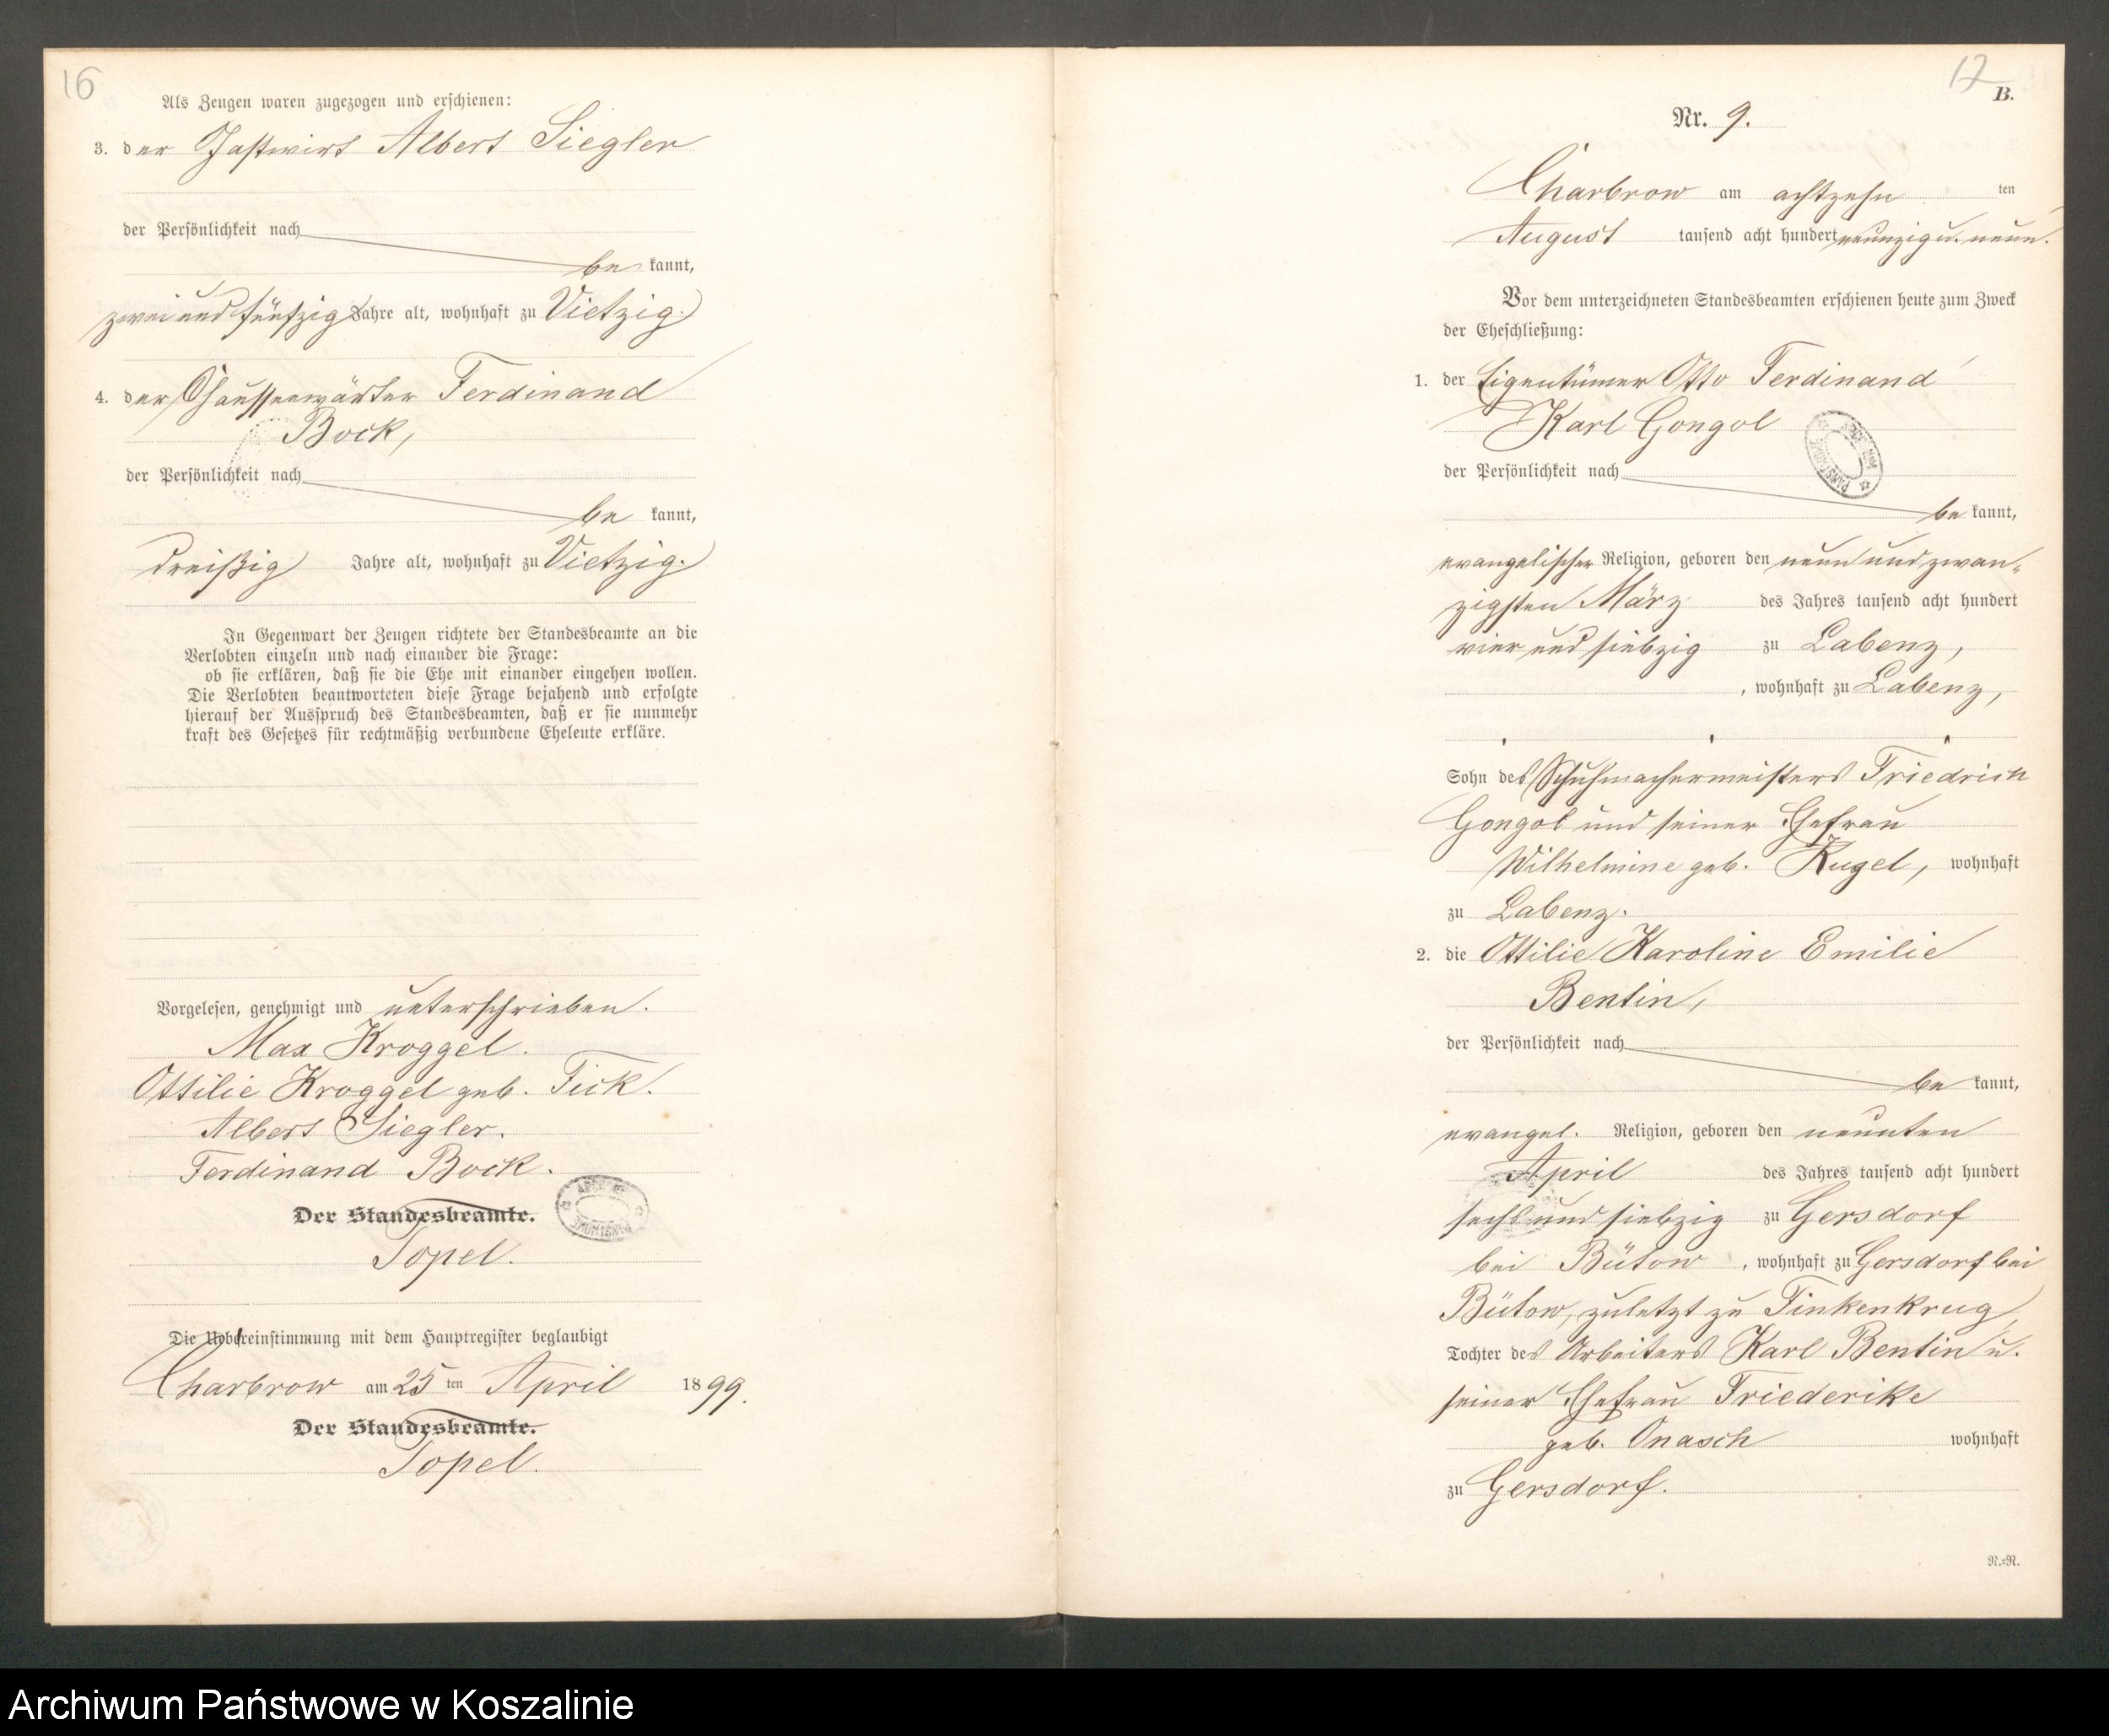 16
Als Zeugen waren zugezogen und erschienen:
3. der Gastwirt Albert Siegler
der Persönlichkeit nach
be kannt,
zwei und fünfzig Jahre alt, wohnhaft zu Vietzig.
4. der Chausseewärter Ferdinand
Bock,
der Persönlichkeit nach
be kannt,
dreißig Jahre alt, wohnhaft zu Vietzig.
In Gegenwart der Zeugen richtete der Standesbeamte an die
Verlobten einzeln und nach einander die Frage:
ob sie erklären, daß sie die Ehe mit einander eingehen wollen.
Die Verlobten beantworteten diese Frage bejahend und erfolgte
hierauf der Ausspruch des Standesbeamten, daß er sie nunmehr
kraft des Gesetzes für rechtmäßig verbundene Eheleute erkläre.
Vorgelesen, genehmigt und unterschrieben.
Max Kroggel.
Ottilie Kroggel geb. Fick.
Albert Siegler.
Ferdinand Bock.
Der Standesbeamte.
Topel.
Die Uebereinstimmung mit dem Hauptregister beglaubigt
Charbrow am 25 ten April 1899.
Der Standesbeamte.
Topel.
17
B.
Nr. 9.
Charbrow am achtzehn ten
August tausend acht hundert neunzig u. neun.
Vor dem unterzeichneten Standesbeamten erschienen heute zum Zweck
der Eheschließung:
1. der Eigentümer Otto Ferdinand
Karl Gongol
der Persönlichkeit nach
be kannt,
evangelischer Religion, geboren den neun und zwan-
zigsten März des Jahres tausend acht hundert
vier und siebzig zu Labenz,
, wohnhaft zu Labenz,
Sohn des Schuhmachermeisters Friedrich
Gongol und seiner Ehefrau
Wilhelmine geb. Kugel, wohnhaft
zu Labenz.
2. die Ottilie Karoline Emilie
Bentin,
der Persönlichkeit nach
be kannt,
evangel. Religion, geboren den neunten
April des Jahres tausend acht hundert
sechs und siebzig zu Gersdorf
bei Bütow, wohnhaft zu Gersdorf bei
Bütow, zuletzt zu Finkenkrug
Tochter des Arbeiters Karl Bentin u.
seiner Ehefrau Friederike
geb. Onasch wohnhaft
zu Gersdorf.
N.=N.
Archiwum Państwowe w Koszalinie